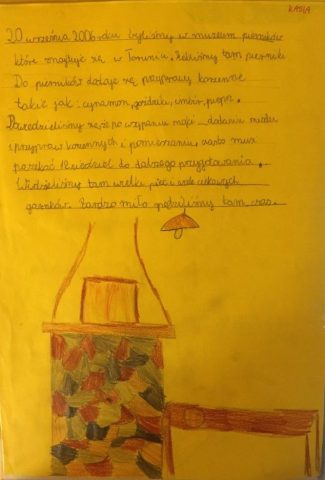 KASIA
20 września 2006 roku byliśmy w muzeum piernika
które znajduje się w Toruniu. Piekliśmy tam pierniki
Do pierników dodaje się przyprawy korzenne
takie jak: cynamon, goździki, imbir, pieprz.
Dowiedzieliśmy się że po wsypaniu mąki dodaniu miodu
i przypraw korzennych i pomieszaniu, ciasto musi
do dalszego przygotowania.
Widzieliśmy tam wielki piec i wiele ciekawych
garnków. Bardzo miło spędziliśmy tam czas.